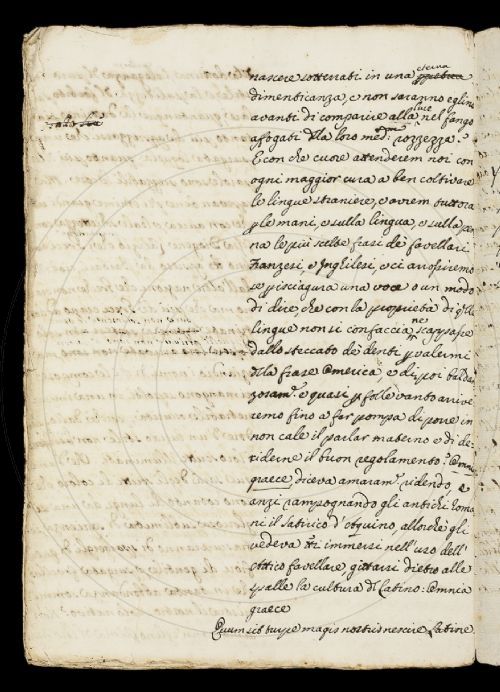 nascere sotterrati in una eterna
dimenticanza, e non saranno eglino
avanti di comparire alla luce nel fango
affogati dlla loro medma rozzezza.
E con che cuore attenderem noi con
ogni maggior cura a ben coltivare
le lingue straniere, e avrem tuttora
p le mani, e sulla lingua, e sulla pen
na le più scelte frasi de' favellari
Franzesi, e Inghilesi, e ci arrossiremo
se p isciagura una voce o un modo
di dire, che con la proprietà di qlle
lingue non si confaccia ne scappasse
dallo steccato de' denti p valermi
dlla frase Omerica, e di poi baldan
zosamte e quasi p folle vanto arrive
remo fino a far pompa di porre in
non cale il parlar materno e di de-
riderne il buon regolamento? Omnia
graece, diceva amaramte ridendo, e
anzi rampognando gli antichi Roma
ni il satirico d'Aquino, allorchè gli
vedeva tti immersi nell'uso dell'
Attico favellare, gittarsi dietro alle
spalle la cultura dl Latino: Omnia
graece
Quum sit turpe magis nostris nescire Latine.